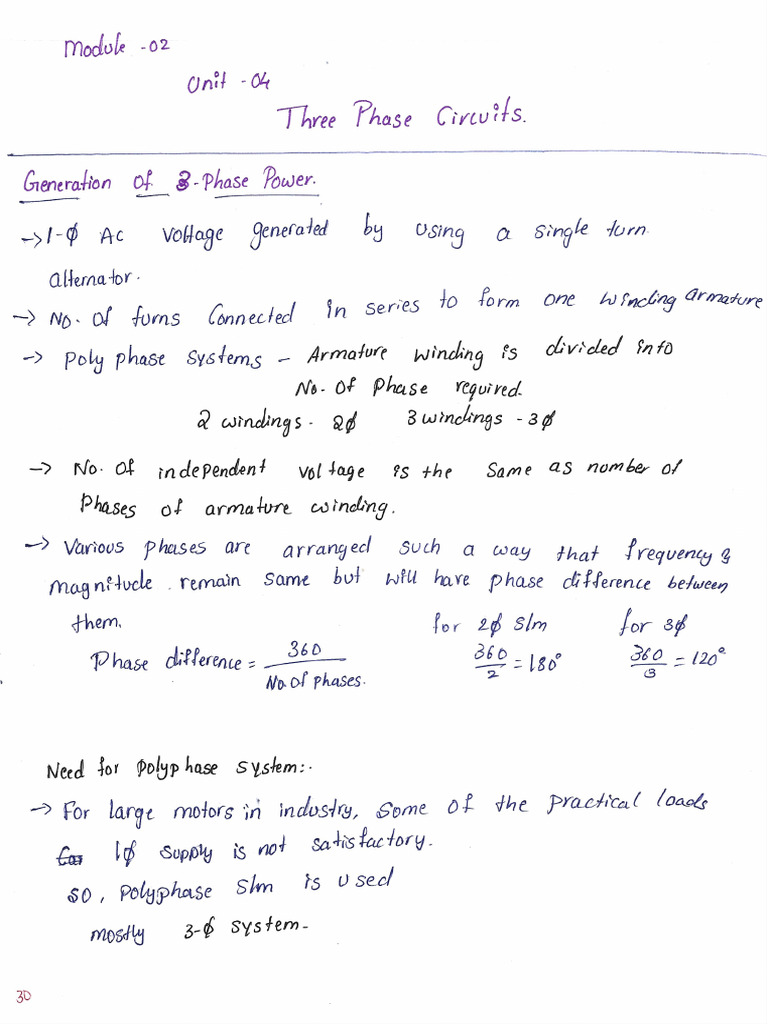 Module -02
Unit -04
Three Phase Circuits.
Generation of 3-Phase Power.
-> 1-ϕ AC voltage generated by using a single turn
alternator.
-> No. of turns Connected in series to form one winding armature
-> Poly phase systems - Armature winding is divided into
No. of Phase required.
2 windings - 2ϕ 3 windings - 3ϕ
-> No. of independent voltage is the same as number of
Phases of armature winding.
-> Various phases are arranged such a way that frequency &
magnitude remain same but will have phase difference between
them.
for 2ϕ S/m for 3ϕ
Phase difference = 360 / No. of phases. 360/2 = 180° 360/3 = 120°
Need for polyphase system:-
-> For large motors in industry, some of the practical loads
1ϕ supply is not satisfactory.
so, polyphase S/m is used
mostly 3-ϕ system-
30